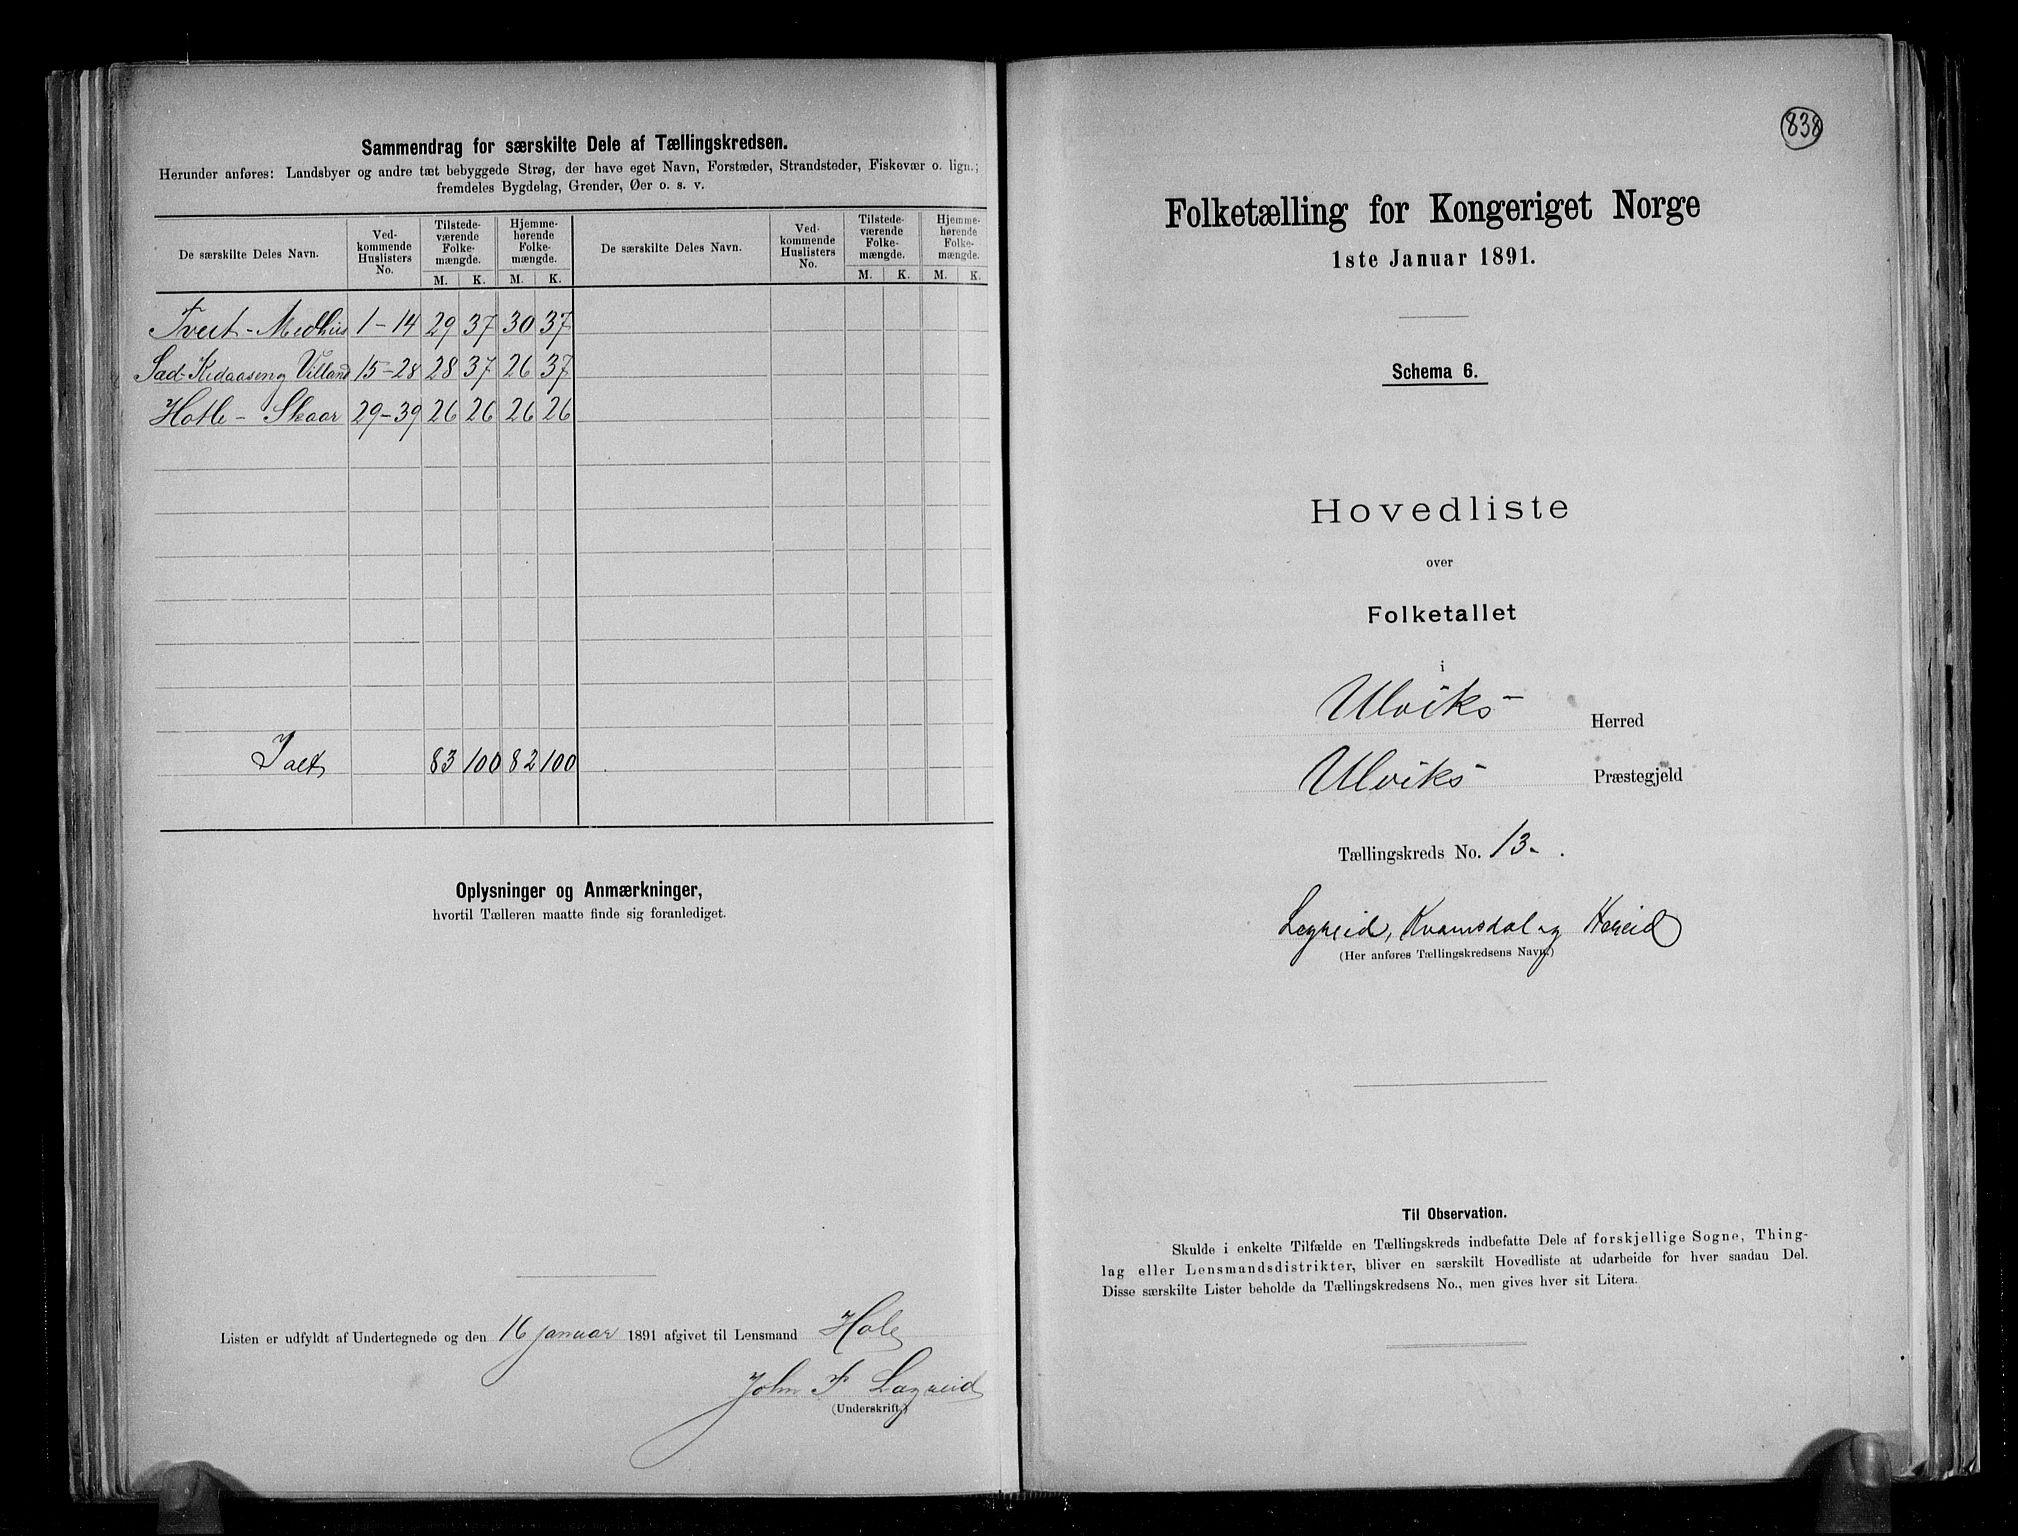 Sammendrag for særskilte Dele af Tællingskredsen.
Herunder anføres: Landsbyer og andre tæt bebyggede Strøg, der have eget Navn, Forstæder, Strandsteder, Fiskevær o. lign.;
fremdeles Bygdelag, Grender, Øer o. s. v.
De særskilte Deles Navn. Ved-kommende Huslisters No. Tilstede-værende Folke-mængde. Hjemme-hørende Folke-mængde. De særskilte Deles Navn. Ved-kommende Huslisters No. Tilstede-værende Folke-mængde. Hjemme-hørende Folke-mængde.
M. K. M. K. M. K. M. K.
Tveit - Medhus 1-14 29 37 30 37
Sæd- Kidaasen og Villand 15-28 28 37 26 37
Hotle - Skaar 29-39 26 26 26 26
Ialt 83 100 82 100
Oplysninger og Anmærkninger,
hvortil Tælleren maatte finde sig foranlediget.
Listen er udfyldt af Undertegnede og den 16 januar 1891 afgivet til Lensmand Hole
John F Lægreid
(Underskrift.)
838
Folketælling for Kongeriget Norge
1ste Januar 1891.
Schema 6.
Hovedliste
over
Folketallet
i
Ulviks - Herred
Ulviks - Præstegjeld
Tællingskreds No. 13 - .
Legreid, Kvamsdal og Hereid
(Her anføres Tællingskredsens Navn.)
Til Observation.
Skulde i enkelte Tilfælde en Tællingskreds indbefatte Dele af forskjellige Sogne, Thing-
lag eller Lensmandsdistrikter, bliver en særskilt Hovedliste at udarbeide for hver saadau Del.
Disse særskilte Lister beholde da Tællingskredsens No., men gives hver sit Litera.